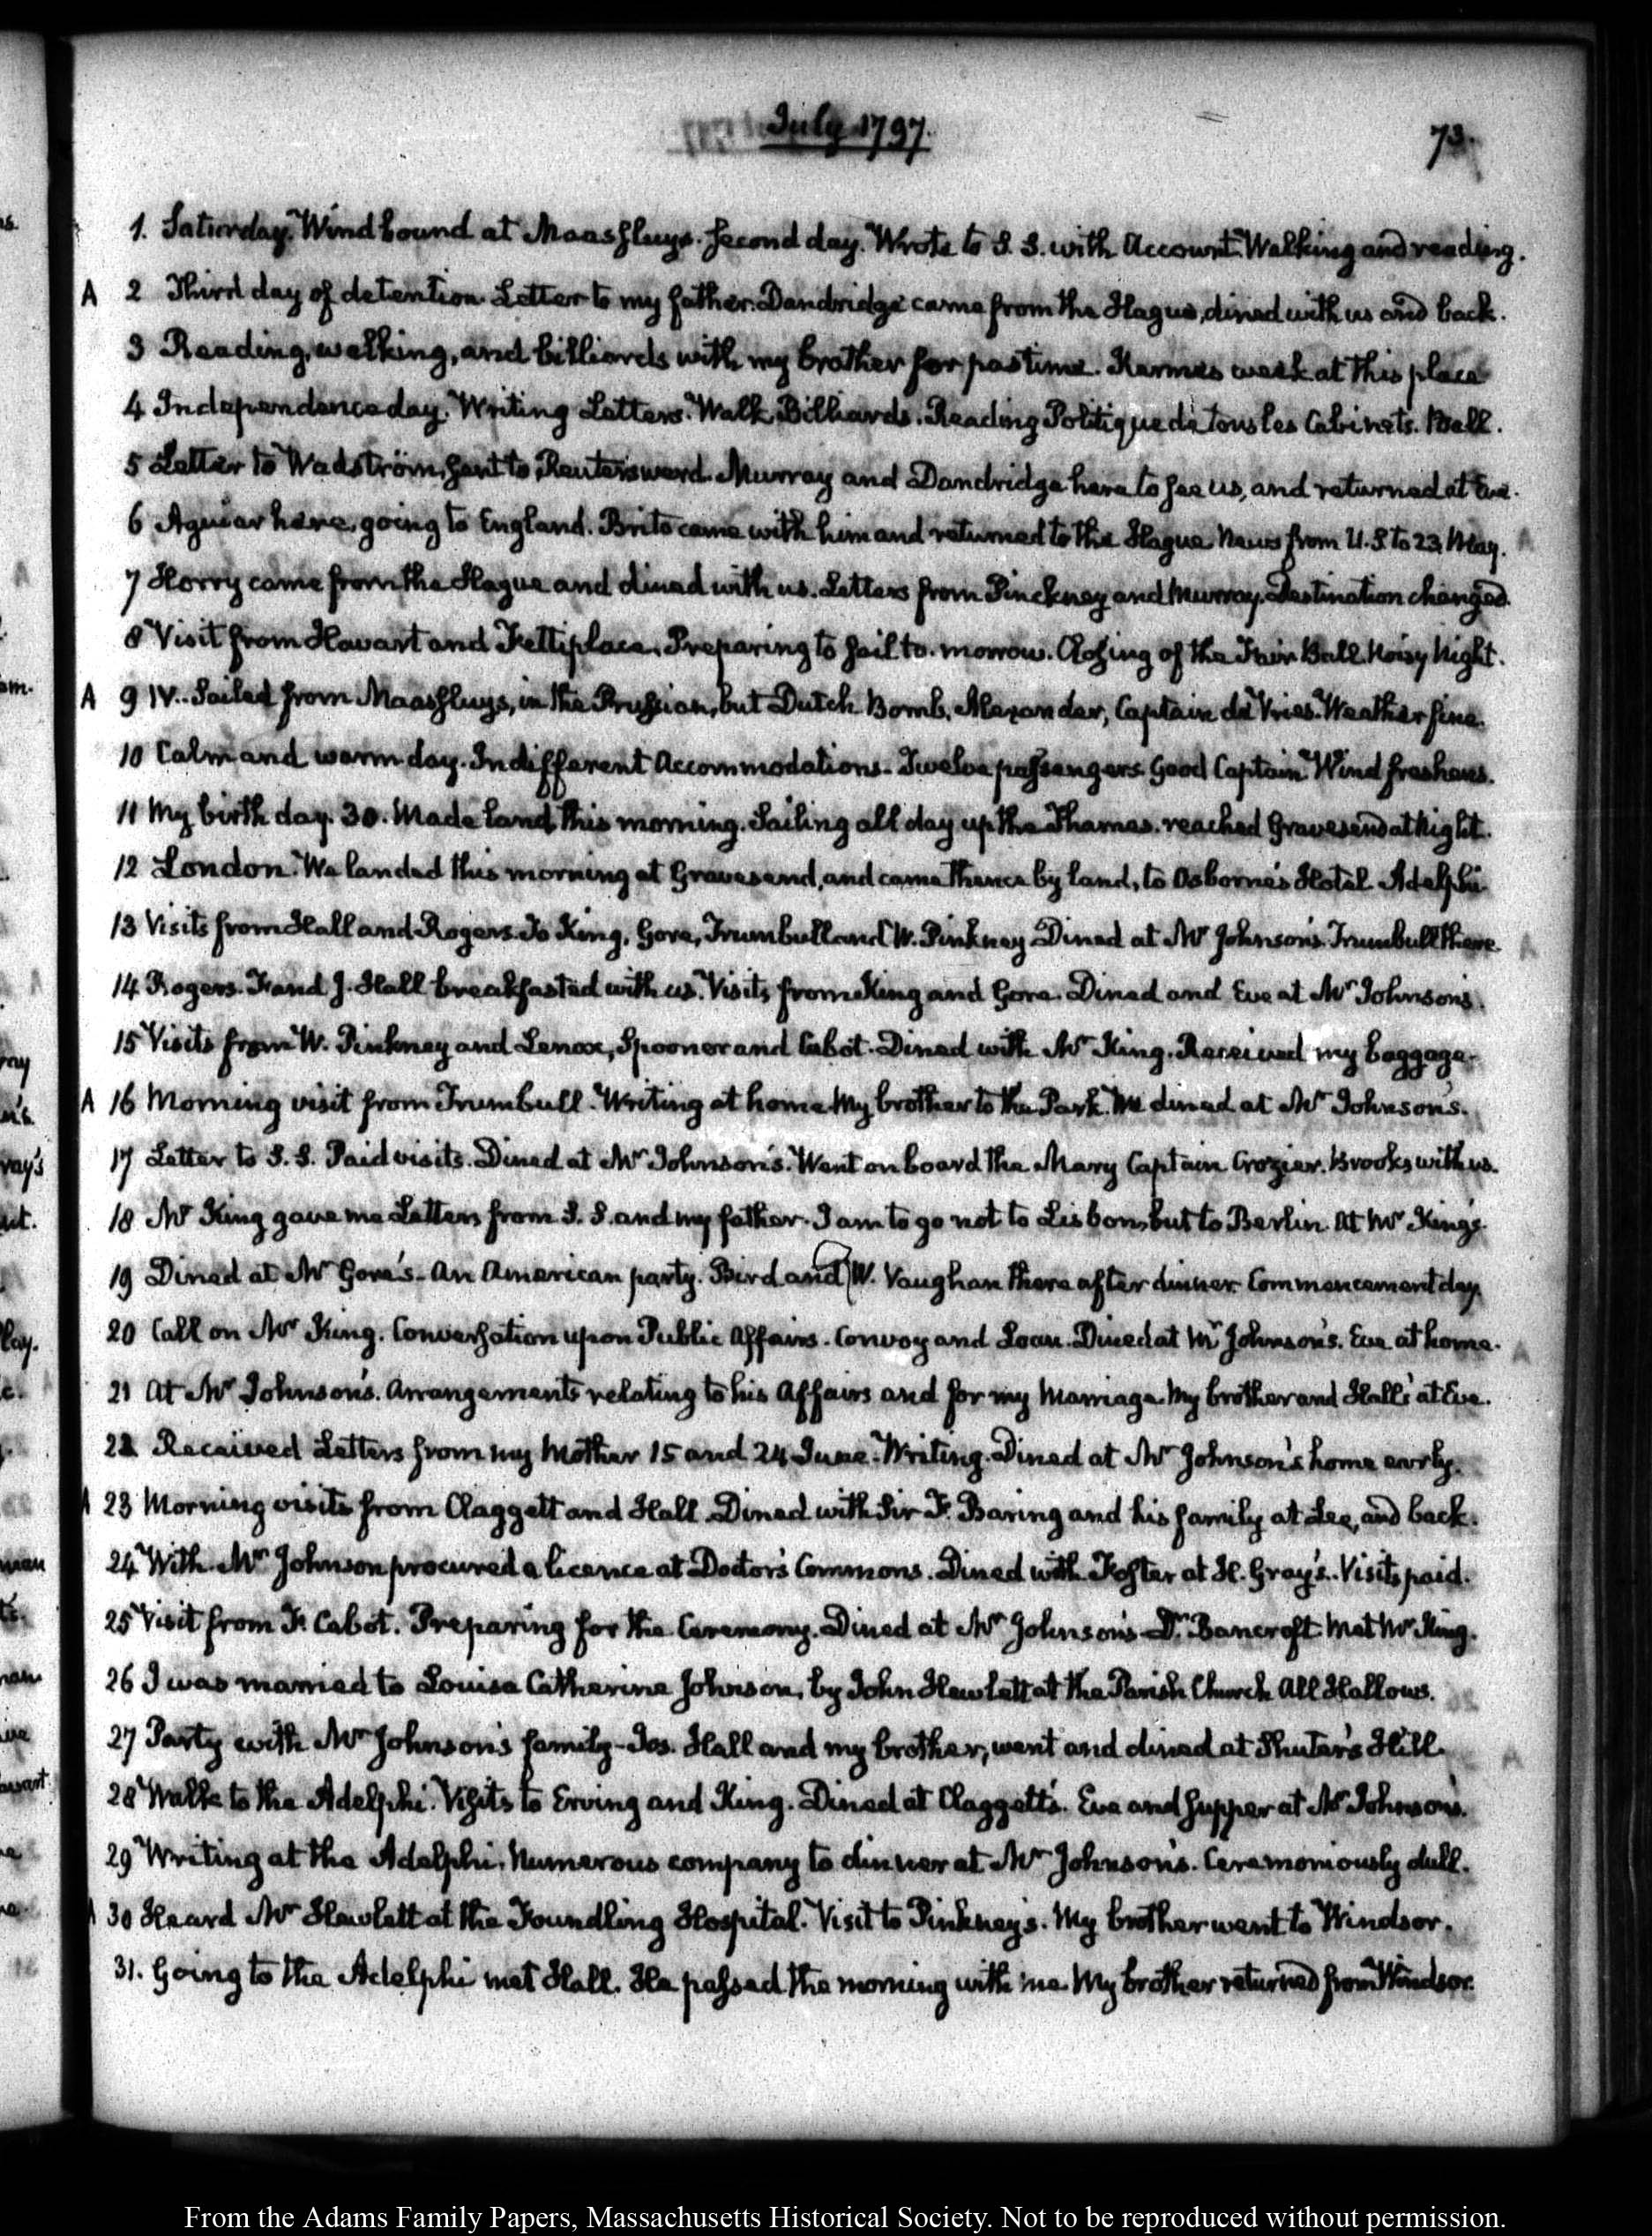 July 1797.
73.
1. Saturday. Wind bound at Maassluys. second day. Wrote to S. S. with Account. Walking and reading.
A 2 Third day of detention. Letter to my father. Dandridge came from the Hague, dined with us and back.
3 Reading, walking, and billiards with my brother for pastime. Kermes week at this place
4 Independence day. Writing Letters. Walk. Billiards. Reading Politique de tous les Cabinets. Ball.
5 Letter to Wadström, sent to Reutersward. Murray and Dandridge here to see us, and returned at Eve.
6 Aguiar here, going to England. Brito came with him and returned to the Hague News from U.S. to 23. May.
7 Horry came from the Hague and dined with us. Letters from Pinckney and Murray. Destination changed.
8 Visit from Havart and Fettiplace. Preparing to sail to-morrow. Closing of the Fair Ball. Noisy Night.
A 9 IV. Sailed from Maassluys, in the Prussian, but Dutch Bomb, Alexander, Captain de Vries. Weather fine.
10 Calm and warm day. Indifferent Accommodations. Twelve passengers. Good Captain. Wind freshens.
11 My birth day. 30. Made land this morning. Sailing all day up the Thames. reached Gravesend at Night.
12 London. We landed this morning at Gravesend, and came thence by land, to Osborne's Hotel Adelphi
13 Visits from Hall and Rogers. To King, Gore, Trumbull and W. Pinkney Dined at Mr Johnson's. Trumbull there.
14 Rogers. F. and J. Hall breakfasted with us. Visits from King and Gore. Dined and Eve at Mr Johnson's.
15 Visits from W. Pinkney and Lenox, Spooner and Cabot. Dined with Mr King. Received my baggage.
A 16 Morning visit from Trumbull. Writing at home. My brother to the Park. We dined at Mr Johnson's.
17 Letter to S. S. Paid visits. Dined at Mr Johnson's. Went on board the Mary Captain Crozier. Brooks with us.
18 Mr King gave me Letters from S. S. and my father. I am to go not to Lisbon, but to Berlin. At Mr King's.
19 Dined at Mr Gore's. An American party. Bird and W. Vaughan there after dinner. Commencement day.
20 Call on Mr King. Conversation upon Public Affairs. Convoy and Loan. Dined at Mr Johnson's. Eve at home.
21 At Mr Johnson's. Arrangements relating to his Affairs and for my Marriage. My brother and Halls at Eve.
22 Received Letters from my Mother 15 and 24 June. Writing. Dined at Mr Johnson's home early.
A 23 Morning visits from Claggett and Hall. Dined with Sir F. Baring and his family at Lee, and back.
24 With Mr Johnson procured a licence at Doctor's Commons. Dined with Foster at H. Gray's. Visits paid.
25 Visit from F. Cabot. Preparing for the Ceremony. Dined at Mr Johnson's Dr. Bancroft. Met Mr King.
26 I was married to Louisa Catherine Johnson, by John Hewlett at the Parish Church All Hallows.
27 Party with Mr Johnson's family-Jos. Hall and my brother, went and dined at Shuter's Hill.
28 Walk to the Adelphi. Visits to Erving and King. Dined at Claggett's. Eve and supper at Mr Johnson's.
29 Writing at the Adelphi. Numerous company to dinner at Mr Johnson's. Ceremoniously dull.
A 30 Heard Mr Hewlett at the Foundling Hospital. Visit to Pinkney's. My brother went to Windsor.
31. Going to the Adelphi met Hall. He passed the morning with me. My brother returned from Windsor.
From the Adams Family Papers, Massachusetts Historical Society. Not to be reproduced without permission.